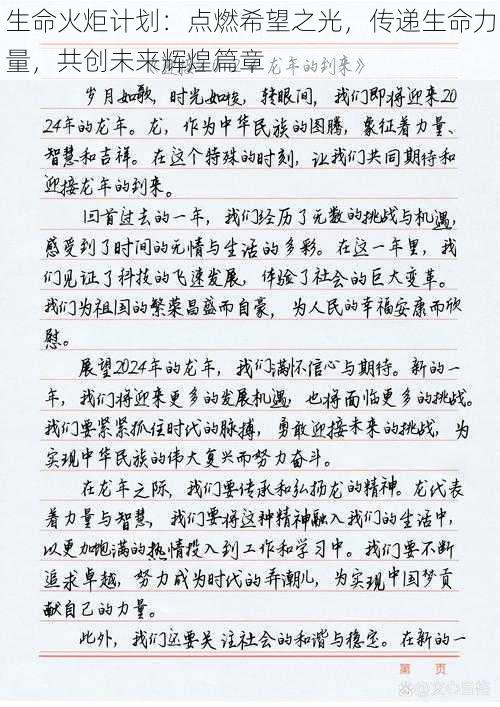 生命火炬计划：点燃希望之光，传递生命力
量，共创未来辉煌篇章
龙年的到来》
岁月如歌，时光如梭，转眼间，我们即将迎来20
24年的龙年。龙，作为中华民族的图腾，象征着力量、
智慧和吉祥。在这个特殊的时刻，让我们共同期待和
迎接龙年的到来。
回首过去的一年，我们经历了无数的挑战与机遇，
感受到了时间的无情与生活的多彩。在这一年里，我
们见证了科技的飞速发展，体验了社会的巨大变革。
我们为祖国的繁荣昌盛而自豪，为人民的幸福安康而欣
慰。
展望2024年的龙年，我们满怀信心与期待。新的一
年，我们将迎来更多的发展机遇，也将面临更多的挑战。
我们要紧紧抓住时代的脉搏，勇敢迎接未来的挑战，为
实现中华民族的伟大复兴而努力奋斗。
在龙年之际，我们要传承和弘扬龙的精神。龙代表
着力量与智慧，我们要将这种精神融入我们的生活中，
以更加饱满的热情投入到工作和学习中。我们要不断
追求卓越，努力成为时代的弄潮儿，为实现中国梦贡
献自己的力量。
此外，我们还要关注社会的和谐与稳定。在新的一
第 页